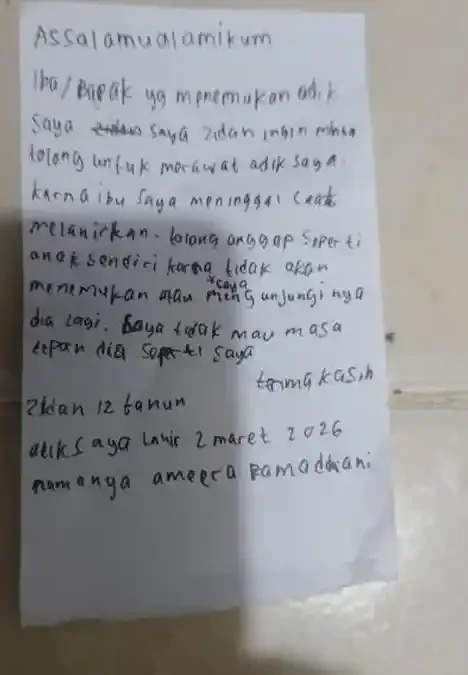 Assalamualamikum
Iba/Bapak yg menemukan adik
saya saya zidan ingin minta
tolong untuk merawat adik saya.
karna ibu saya meninggal saat
melahirkan. tolong anggap seperti
anak sendiri karna tidak akan
menemukan atau saya mengunjungi nya
dia lagi. saya tidak mau masa
depan dia seperti saya
terima kasih
Zidan 12 tahun
adik saya Lahir 2 maret 2026
namanya ameera Ramadhani